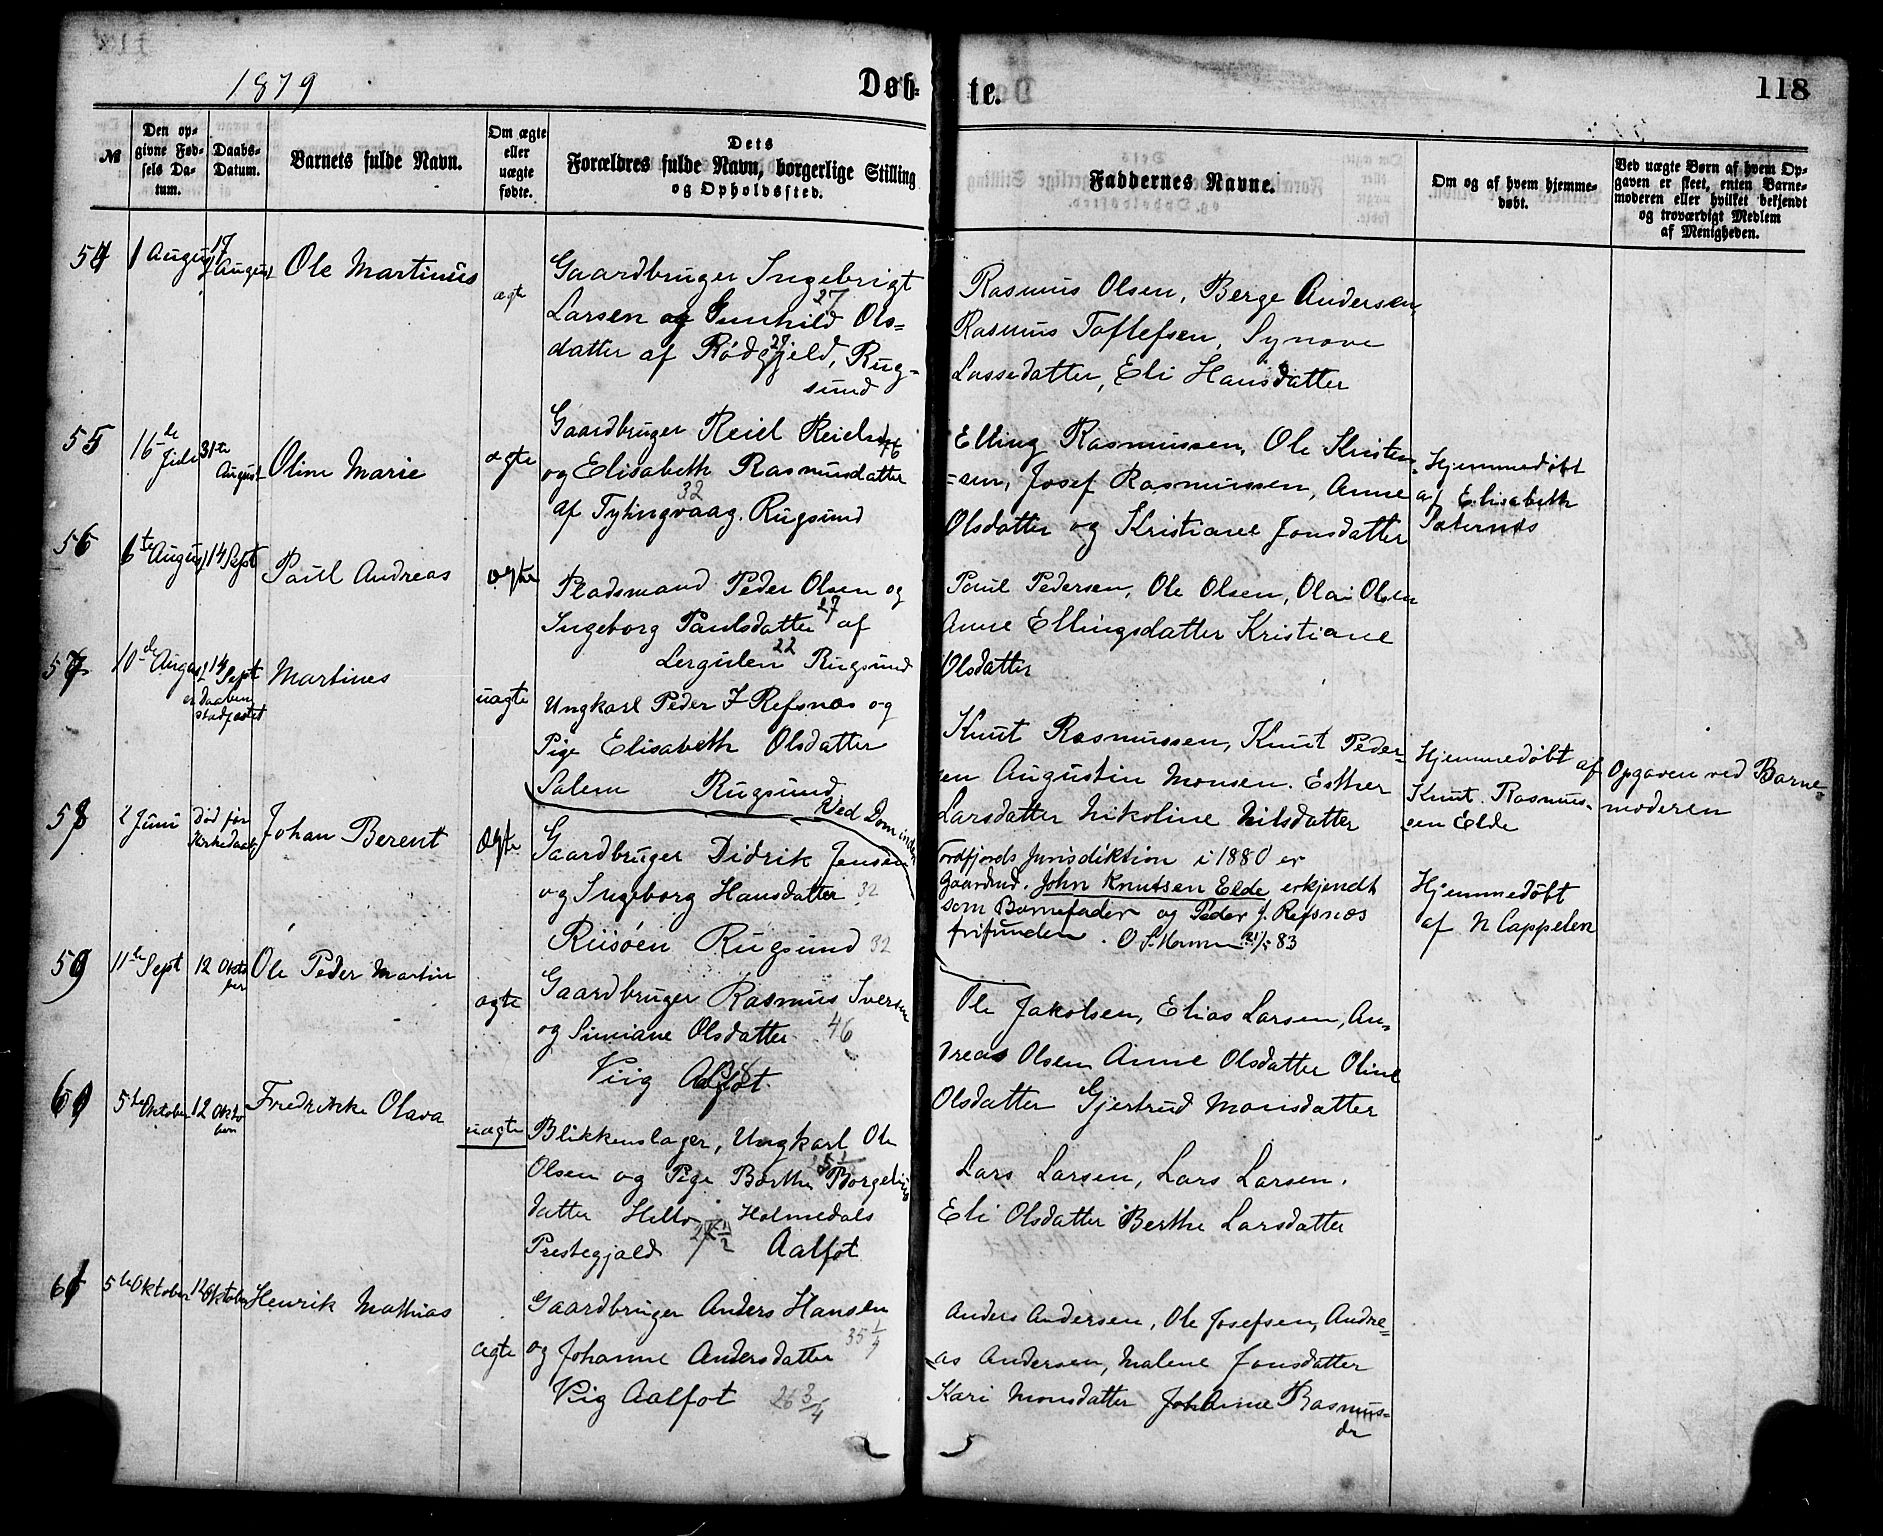 1879
Døb-
te.
118
№
Den op-
givne Fød-
sels Da-
tum.
Daabs-
Datum.
Barnets fulde Navn.
Om ægte
eller
uægte
fødte.
Dets
Forældres fulde Navn, borgerlige Stilling
og Opholdssted.
Faddernes Navne.
Om og af hvem hjemme-
døbt.
Ved uægte Børn af hvem Op-
gaven er skeet, enten Barne-
moderen eller hvilket bekjendt
og troværdigt Medlem
af Menigheden.
54
1 August
17 August
Ole Martinus
ægte
Gaardbruger Ingebrigt
27
Larsen og Gunhild Ols-
datter af Rødgjeld, Rug-
29
sund
Rasmus Olsen, Berge Andersen
Rasmus Toflefsen, Synove
Lassedatter, Eli Hansdatter
55
16de Juli
31te August
Oline Marie
ægte
Gaardbruger Reiel Reielsen 46
og Elisabeth Rasmusdatter
32
af Tytingvaag. Rugsund
Elling Rasmussen, Ole Kristen-
=sen, Josef Rasmussen, Anne
Olsdatter og Kristiane Jonsdatter
Hjemmedøbt
af Elisabeth
Saternes
56
6te August
14 Sept
Paul Andreas
ægte
Pladsmand Peder Olsen og
27
Ingeborg Paulsdatter af
Lergulen 22 Rugsund
Paul Pedersen, Ole Olsen, Olai Olsen
Anne Ellingsdatter Kristiane
Olsdatter
57
10de August
14 Sept
er Daaben
stadfæstet
Martines
uægte
Ungkarl Peder J Refsnæs og
Pige Elisabeth Olsdatter
Salem Rugsund
Knut Rasmussen, Knut Peder-
sen Augustin Monsen. Esther
Larsdatter Nikoline Nilsdatter
Hjemmedøbt af
Knut Rasmus-
sen Elde
Opgaven ved Barne-
moderen
Ved Dom inden
Nordfjords Jurisdiktion i 1880 er
Gaardmd. John Knutsen Elde erkjendt
som Barnefader og Peder J. Refsnæs
frifunden. 83
58
2 Juni
død før
Kirkedaab
Johan Berent
ægte
Gaardbruger Didrik Jensen
og Ingeborg Hansdatter 32
Riisøen Rugsund 32
Hjemmedøbt
af N Cappelen
59
11te Sept
12 Okto
ber
Ole Peder Martin
ægte
Gaardbruger Rasmus Iversen
og Simiane Olsdatter 46
Viig Aalfot 38
Ole Jakobsen, Elias Larsen, An-
dreas Olsen Anne Olsdatter Oline
Olsdatter Gjertrud Monsdatter
60
5te Oktober
12 Okto
ber
Fredrikke Olava
uægte
Blikkenslager, Ungkarl Ole
Olsen og Pige Barthe Børgelius
datter Helle Holmedals
Prestegjæld Aalfot
Lars Larsen, Lars Larsen.
Eli Olsdatter Berthe Larsdatter
61
5te Oktober
12 Oktober
Henrik Mathias
ægte
Gaardbruger Anders Hansen
35 1/4
og Johanne Andersdatter
Viig Aalfot 26 3/4
Anders Andersen, Ole Josefsen, Andre-
as Andersen, Malene Jonsdatter
Kari Monsdatter Johanne Rasmus-
dr